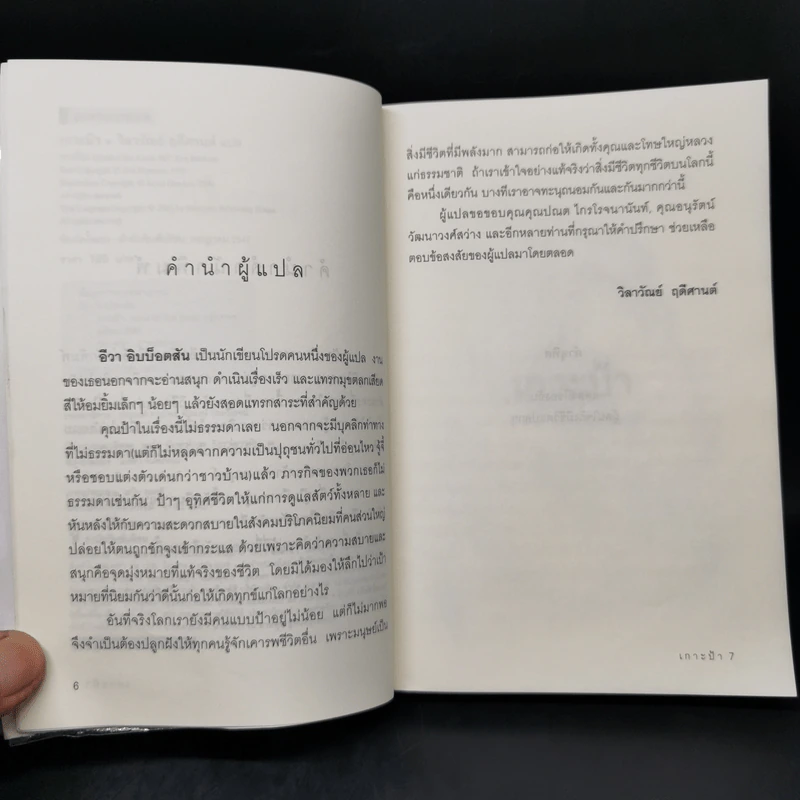 คำนำผู้แปล
อีวา อิบบ็อตสัน เป็นนักเขียนโปรดคนหนึ่งของผู้แปล งาน
ของเธอนอกจากจะอ่านสนุก ดำเนินเรื่องเร็ว และแทรกมุขตลกเสียด
สีให้อมยิ้มเล็กๆ น้อยๆ แล้วยังสอดแทรกสาระที่สำคัญด้วย
คุณป้าในเรื่องนี้ไม่ธรรมดาเลย นอกจากจะมีบุคลิกท่าทาง
ที่ไม่ธรรมดา(แต่ก็ไม่หลุดจากความเป็นปุถุชนทั่วไปที่อ่อนไหว จู้จี้
หรือชอบแต่งตัวเด่นกว่าชาวบ้าน)แล้ว ภารกิจของพวกเธอก็ไม่
ธรรมดาเช่นกัน ป้าๆ อุทิศชีวิตให้แก่การดูแลสัตว์ทั้งหลาย และ
หันหลังให้กับความสะดวกสบายในสังคมบริโภคนิยมที่คนส่วนใหญ่
ปล่อยให้ตนถูกชักจูงเข้ากระแส ด้วยเพราะคิดว่าความสบายและ
สนุกคือจุดมุ่งหมายที่แท้จริงของชีวิต โดยมิได้มองให้ลึกไปว่าเป้า
หมายที่นิยมกันว่าดีนั้นก่อให้เกิดทุกข์แก่โลกอย่างไร
อันที่จริงโลกเรายังมีคนแบบป้าอยู่ไม่น้อย แต่ก็ไม่มากพอ
จึงจำเป็นต้องปลูกฝังให้ทุกคนรู้จักเคารพชีวิตอื่น เพราะมนุษย์เป็น
6
สิ่งมีชีวิตที่มีพลังมาก สามารถก่อให้เกิดทั้งคุณและโทษใหญ่หลวง
แก่ธรรมชาติ ถ้าเราเข้าใจอย่างแท้จริงว่าสิ่งมีชีวิตทุกชีวิตบนโลกนี้
คือหนึ่งเดียวกัน บางทีเราอาจทะนุถนอมกันและกันมากกว่านี้
ผู้แปลขอขอบคุณคุณปณต ไกรโรจนานันท์, คุณอนุรัตน์
วัฒนาวงศ์สว่าง และอีกหลายท่านที่กรุณาให้คำปรึกษา ช่วยเหลือ
ตอบข้อสงสัยของผู้แปลมาโดยตลอด
วิลาวัณย์ ฤดีศานต์
เกาะป้า 7